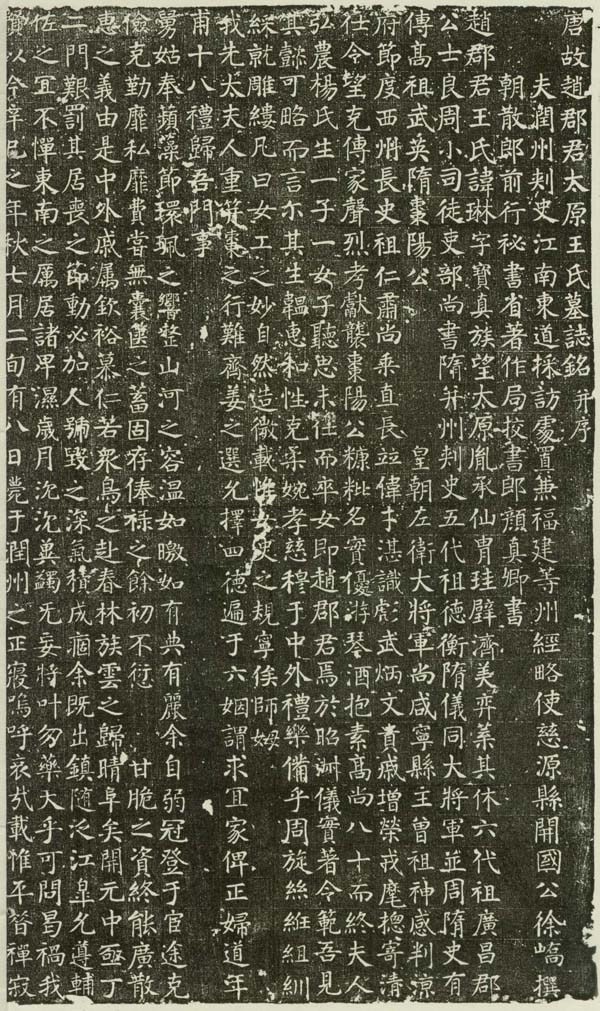 唐故趙郡君太原王氏墓誌銘并序
夫潤州刺史江南東道採訪處置兼福建等州經略使慈源縣開國公徐嶠撰
朝散郎前行祕書省著作局校書郎顏真卿書
趙郡君王氏諱琳字寶真族望太原胤承仙胄珪璧濟美弈葉其休六代祖廣昌郡
公士良周小司徒吏部尚書隋并州刾史五代祖德衡隋儀同大將軍並周隋史有
傳高祖武英隋棗陽公皇朝左衛大將軍尚咸寧縣主曾祖神感判涼
府節度西州長史祖仁肅尚乘直長竝偉才湛識彪武炳文貴戚增榮戎麾摠寄清
任令望克傳家聲烈考獻襲棗陽公糠粃名實優游琴酒抱素高尚八十而終夫人
弘農楊氏生一子一女子聽思未仕而卒女即趙郡君焉於昭淑儀實著令範吾見
其懿可略而言尒其生韞惠和性克柔婉孝慈穆于中外禮樂備乎周旋絲絍組紃
綵就雕縷凡曰女工之妙自然造微載惟女史之規寧俟師姆
我先太夫人重筭棗之行難齊姜之選允擇四德遍于六姻謂求宜家俾正婦道年
甫十八禮歸吾門事
舅姑奉蘋藻節環珮之響整山河之容溫如暾如有典有麗余自弱冠登于官途克
儉克勤靡私靡費嘗無囊篋之蓄固存俸祿之餘初不愆甘脆之資終能廣散
惠之義由是中外戚属欽裕慕仁若衆鳥之赴春林族雲之歸晴阜矣開元中亟丁
二門艱罰其居喪之節動必加人號毀之深氣積成痼余既出鎮隨泛江皐允遵輔
佐之宜不憚東南之厲居諸卑濕歲月沉沉奠蠲无妄將叶勿藥大乎可問曷禍我
賢以今辛巳之年秋七月二旬有八日薨于潤州之正寢嗚呼哀哉載惟平昔禪寂